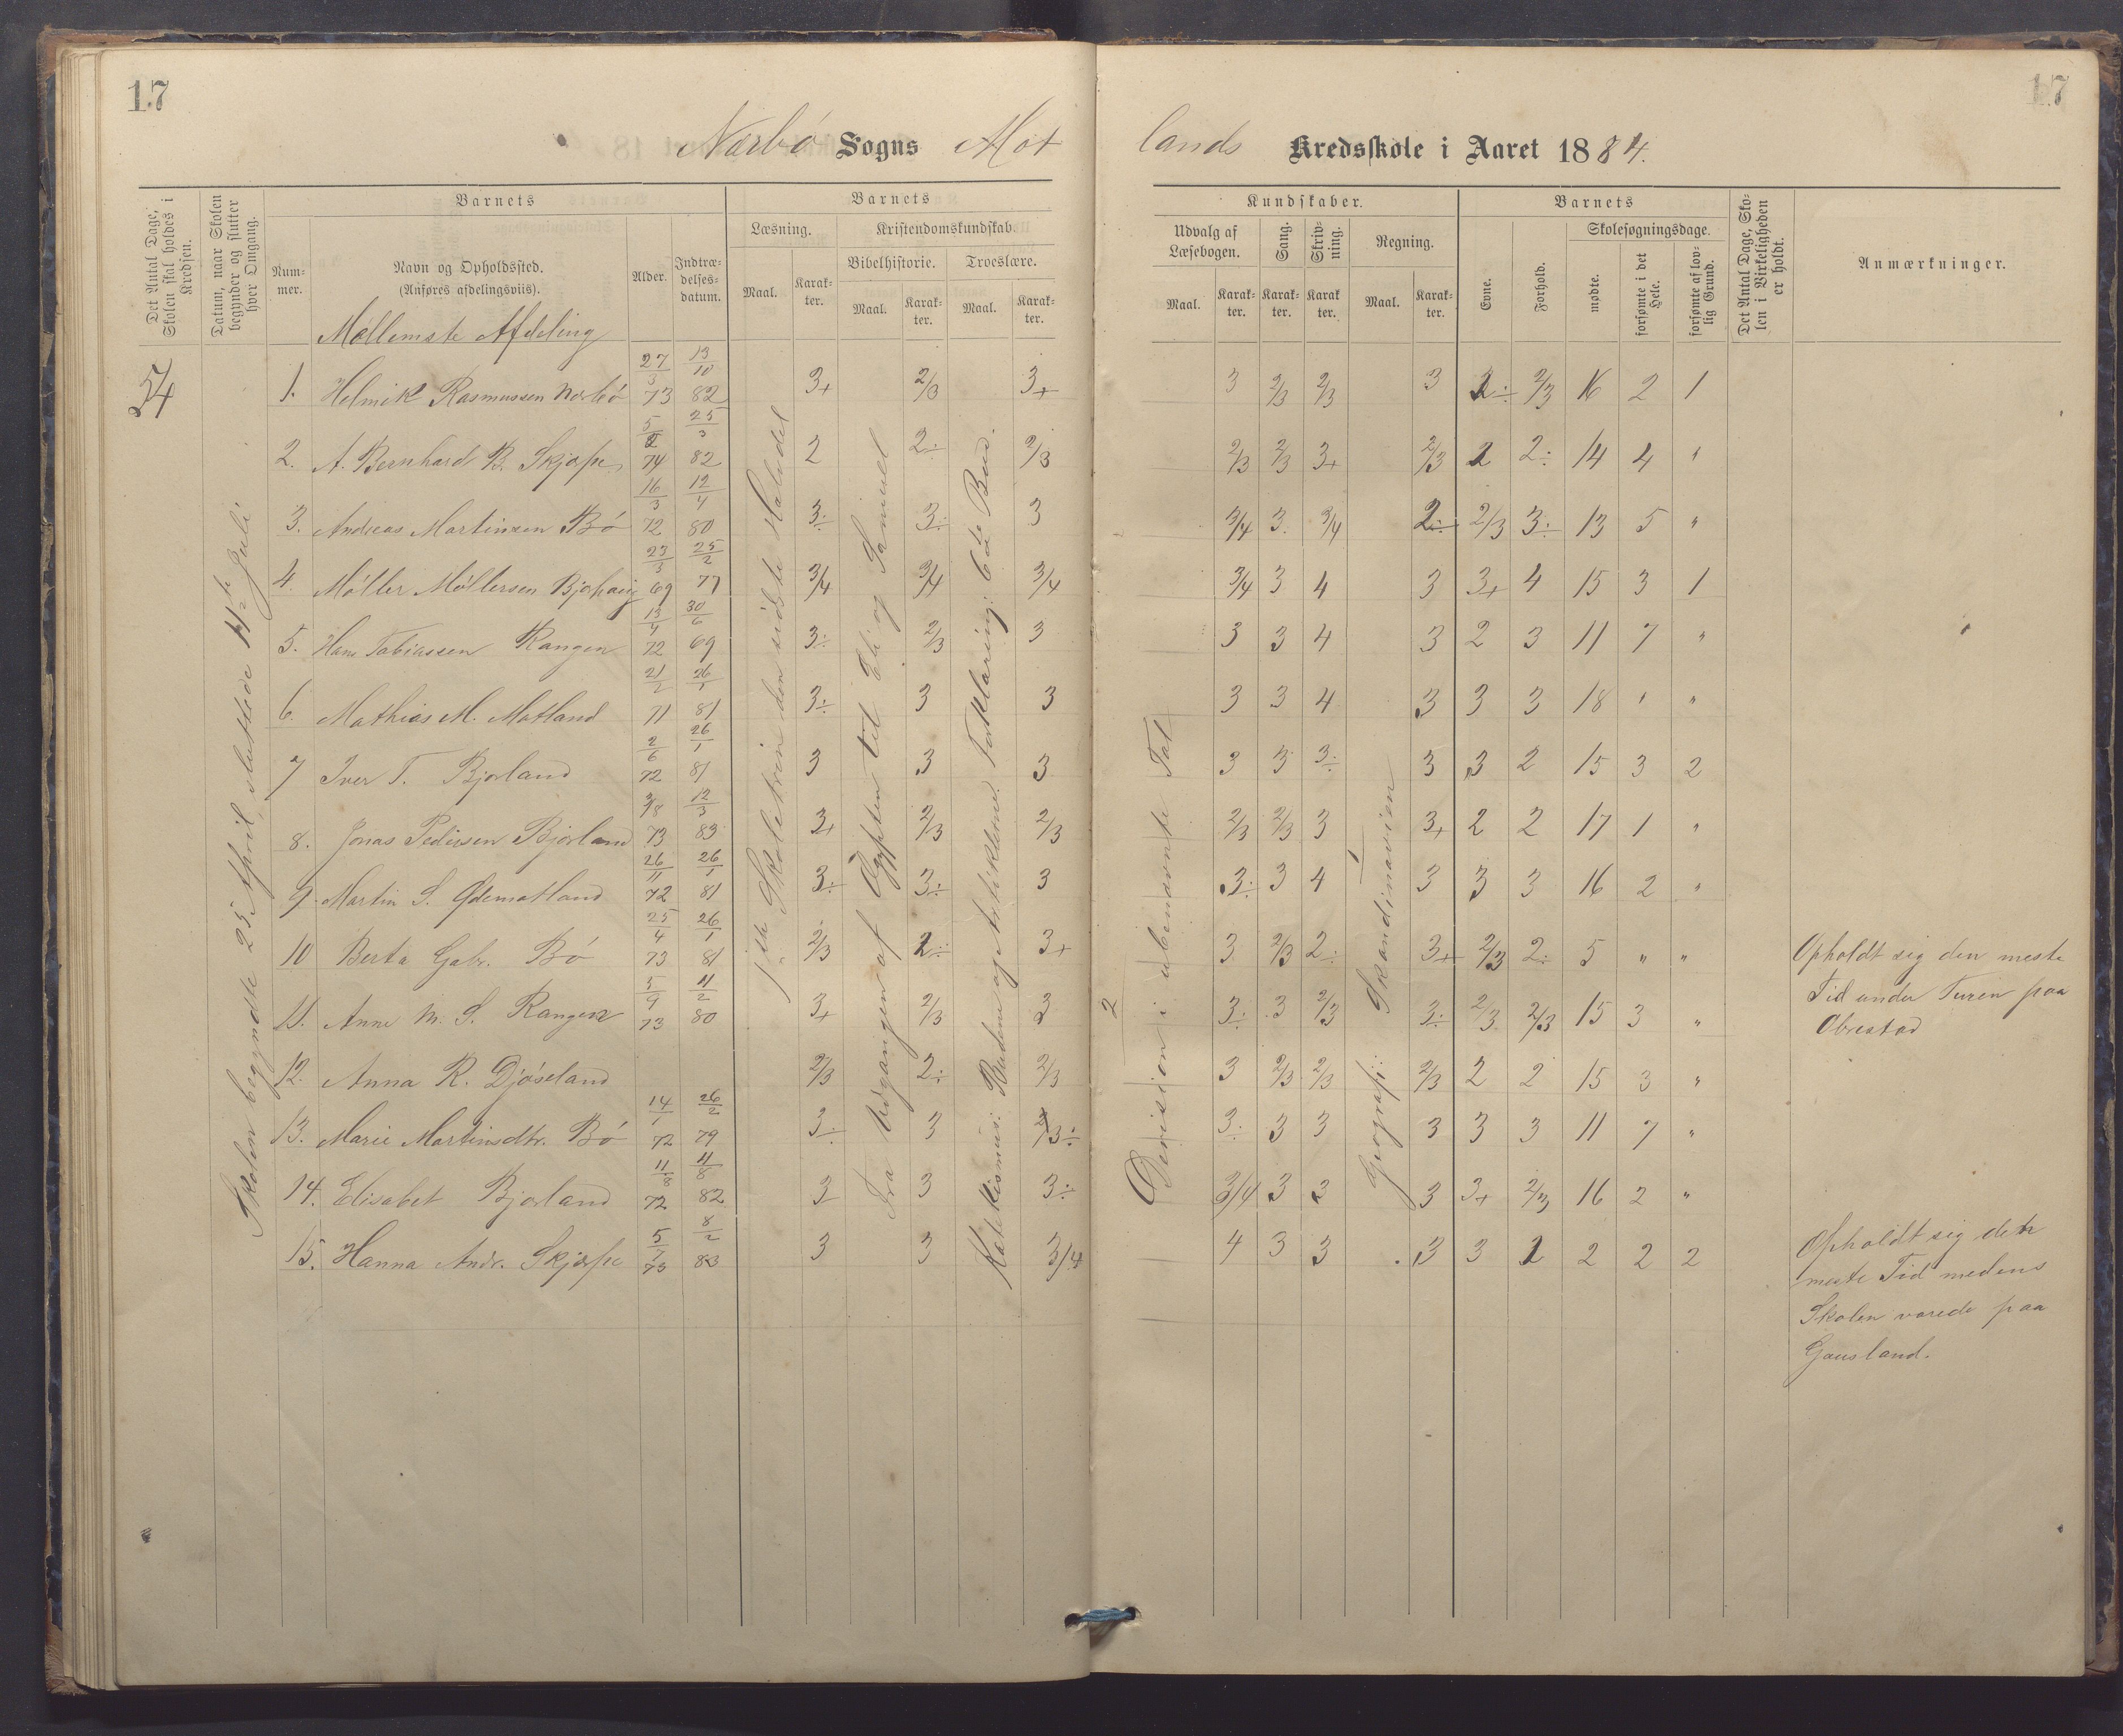 17
17
Nærbø Sogns Mot
lands Kredsskole i Aaret 1884.
Det Antal Dage, Skolen skal holdes i Kredsen.
Datum, naar Skolen begynder og slutter hver Omgang.
Barnets
Num-
mer.
Navn og Opholdssted.
(Anføres afdelingsviis).
Alder.
Indtræ-
delses-
datum.
Barnets
Læsning.
Kristendomskundskab.
Bibelhistorie.
Troeslære.
Maal.
Karak-
ter.
Maal.
Karak-
ter.
Maal.
Karak-
ter.
Kundskaber.
Udvalg af
Læsebogen.
Sang.
Skriv-
ning.
Regning.
Maal.
Karak-
ter.
Karak-
ter.
Karak
ter.
Maal.
Karak-
ter.
Barnets
Evne.
Forhold.
Skolesøgningsdage.
mødte.
forsømte i det
Hele.
forsømte af lov-
lig Grund.
Det Antal Dage, Sko-
len i Virkeligheden
er holdt.
Anmærkninger.
Mellemste Afdeling
54
Skolen begyndte 25 April, sluttede
Juli
1. Helmik Rasmussen Nærbø 27/3 73 13/10 82 3+ 2/3 3+ 3 2/3 2/3 3 2÷ 2/3 16 2 1
2. A. Bernhard B. Skjæpe 5/2 74 25/3 82 2 2÷ 2/3 2/3 2/3 3+ 2/3 2 2÷ 14 4 "
3. Andreas Martinsen Bø 16/3 72 12/4 80 3÷ 3÷ 3 3/4 3 3/4 2÷ 2/3 3÷ 13 5 "
4. Møller Møllersen 23/3 69 25/2 77 3/4 3/4 3/4 3/4 3 4 3 3+ 4 15 3 1
5. Hans Tobiassen Rangen 13/4 72 30/6 69 3÷ 2/3 3 3 3 4 3 2 3 11 7 "
6. Mathias M. Motland 21/2 71 26/1 81 3÷ 3 3 3 3 4 3 3 3 18 " "
7 Iver T. Bjorland 2/6 72 26/1 81 3 3 3 3 3 3÷ 3 3 2 15 3 2
8. Jonas Pedersen Bjorland 3/8 73 12/3 83 3+ 2/3 2/3 2/3 2/3 3 3+ 2 2 17 1 "
9. Martin S. Ødemotland 26/11 72 26/1 81 3÷ 3÷ 3 3÷ 3 4 3 3 3 16 2 "
10 Berta Gabr. Bø 25/4 73 26/1 81 2/3 2÷ 3+ 3 2/3 2÷ 3+ 2/3 2÷ 5 " "
11. Anne M. S. Rangen 5/9 73 11/2 80 3+ 2/3 3 3÷ 3 2/3 3÷ 2/3 2/3 15 3 "
12. Anna R. Djøseland 2/3 2÷ 2/3 3 2/3 2/3 2/3 2 2 15 3 "
13. Marie Martinsdtr. Bø 14/1 72 26/2 79 3÷ 3 3÷ 3÷ 3 3 3 3 3 11 7 "
14. Elisabet Bjorland 11/8 72 11/8 82 3 3 3÷ 3/4 3 3 3 3+ 2/3 16 2 "
15. Hanna Andr. Skjæpe 5/7 73 8/2 83 3 3 3/4 4 3 3 3 3 2 2 2 2
1ste Skoletrin den sidste Halvdel
Fra Udgangen af Ægypten til Eli og Samuel
Katekismus: Budene og Artiklerne. Forklaring: 6te Bud.
2
Division i ubenævnte Tal
Geografi: Skandinavien
Opholdt sig den meste
Tid under Turen paa
Obrestad
Opholdt sig den
meste Tid medens
Skolen varede paa
Gausland.